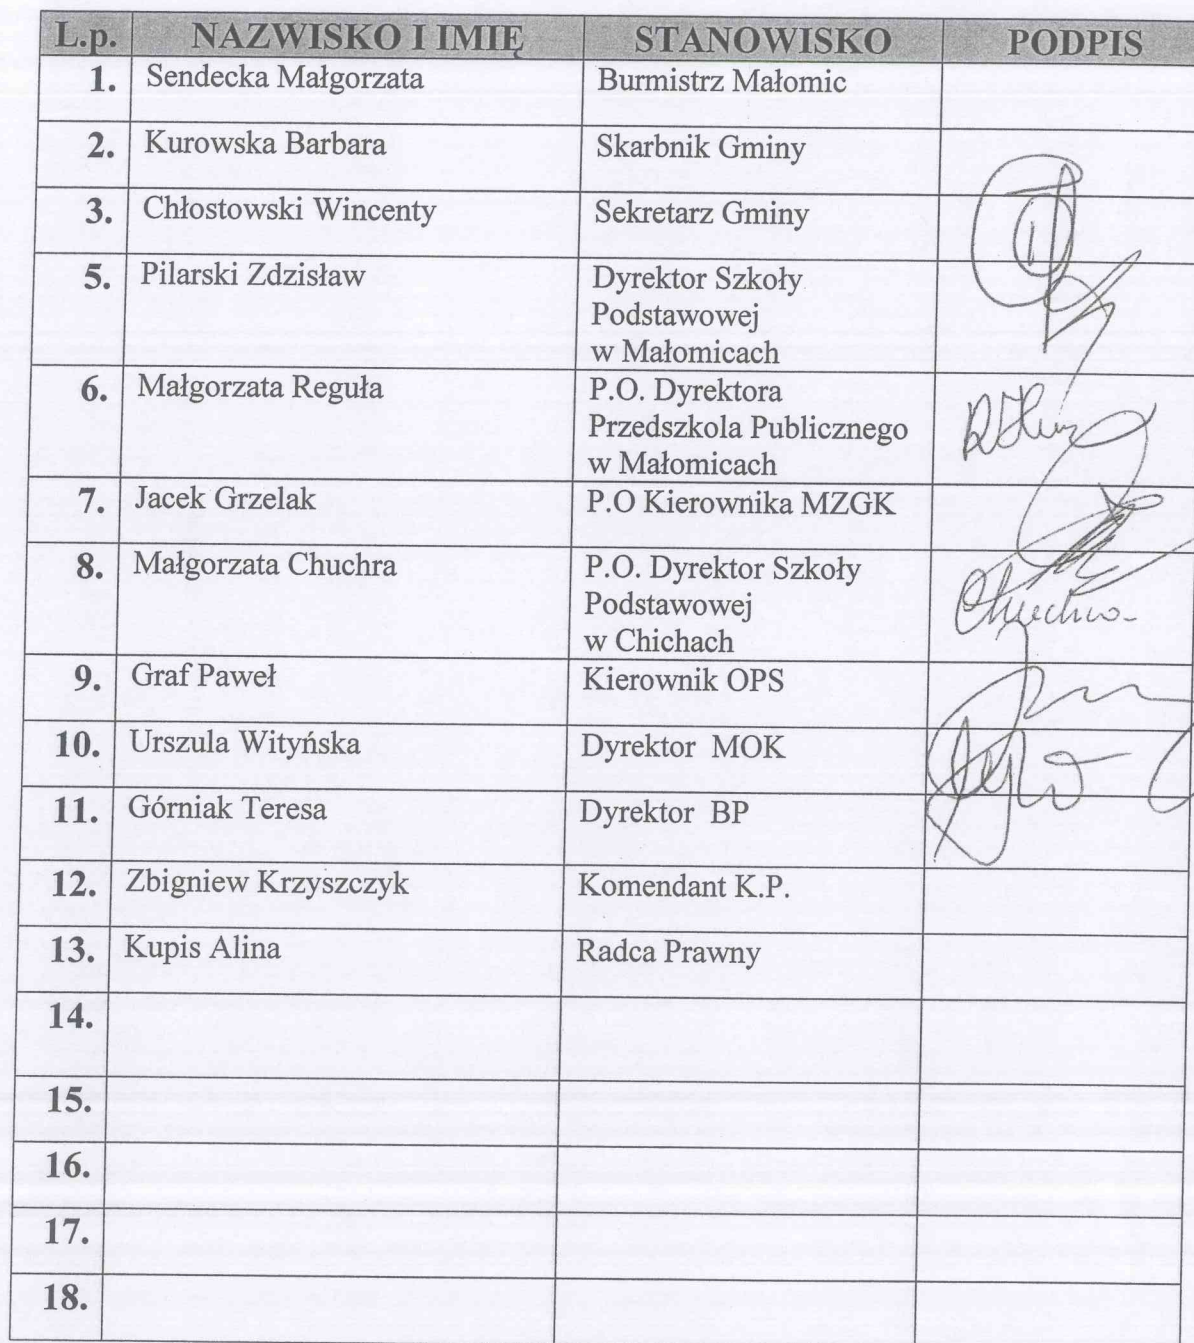 L.p. NAZWISKO I IMIĘ STANOWISKO PODPIS
1. Sendecka Małgorzata Burmistrz Małomic
2. Kurowska Barbara Skarbnik Gminy
3. Chłostowski Wincenty Sekretarz Gminy
5. Pilarski Zdzisław Dyrektor Szkoły
Podstawowej
w Małomicach
6. Małgorzata Reguła P.O. Dyrektora
Przedszkola Publicznego
w Małomicach
7. Jacek Grzelak P.O Kierownika MZGK
8. Małgorzata Chuchra P.O. Dyrektor Szkoły
Podstawowej
w Chichach
9. Graf Paweł Kierownik OPS
10. Urszula Wityńska Dyrektor MOK
11. Górniak Teresa Dyrektor BP
12. Zbigniew Krzyszczyk Komendant K.P.
13. Kupis Alina Radca Prawny
14.
15.
16.
17.
18.